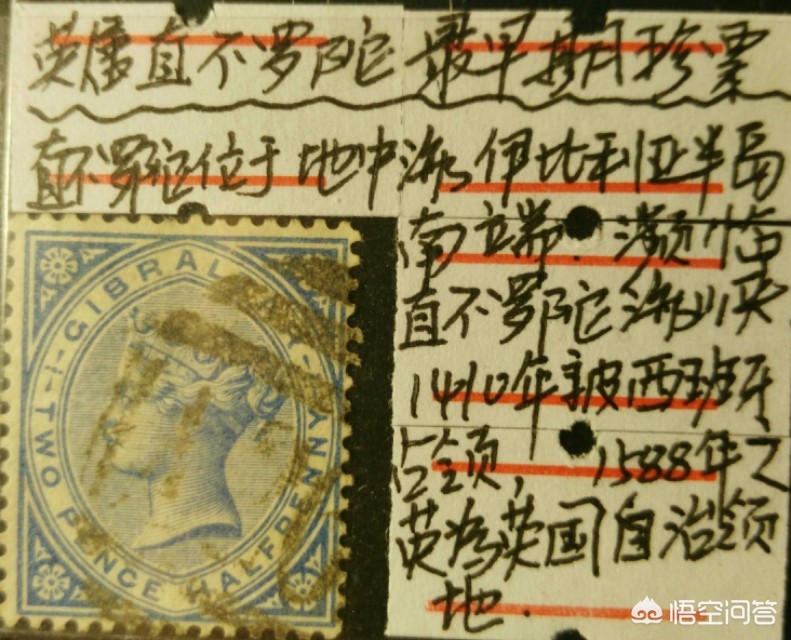 英属直不罗陀最早期珍票
直不罗陀位于地中海伊比利亚半岛
南立端．濒临
直不罗陀海峡
1410年被西班牙
占领，1588年之
英为英国自治领
地．
GIBRALTAR
TWO PENCE HALFPENNY
悟空问答